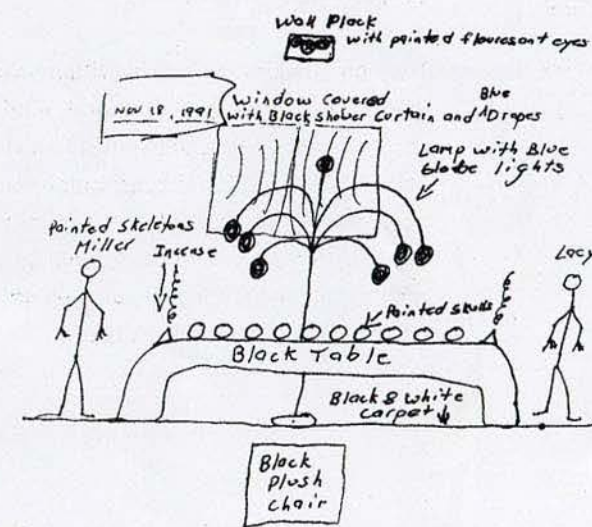 Wall Plack
with painted flouresant eyes
Nov 18, 1991
Window covered
with Black shower Curtain and ^Blue Drapes
Lamp with Blue
Globe lights
Painted Skeletons
Miller
Incense
Lacy
Painted skulls
Black Table
Black & white
carpet
Black
Plush
Chair